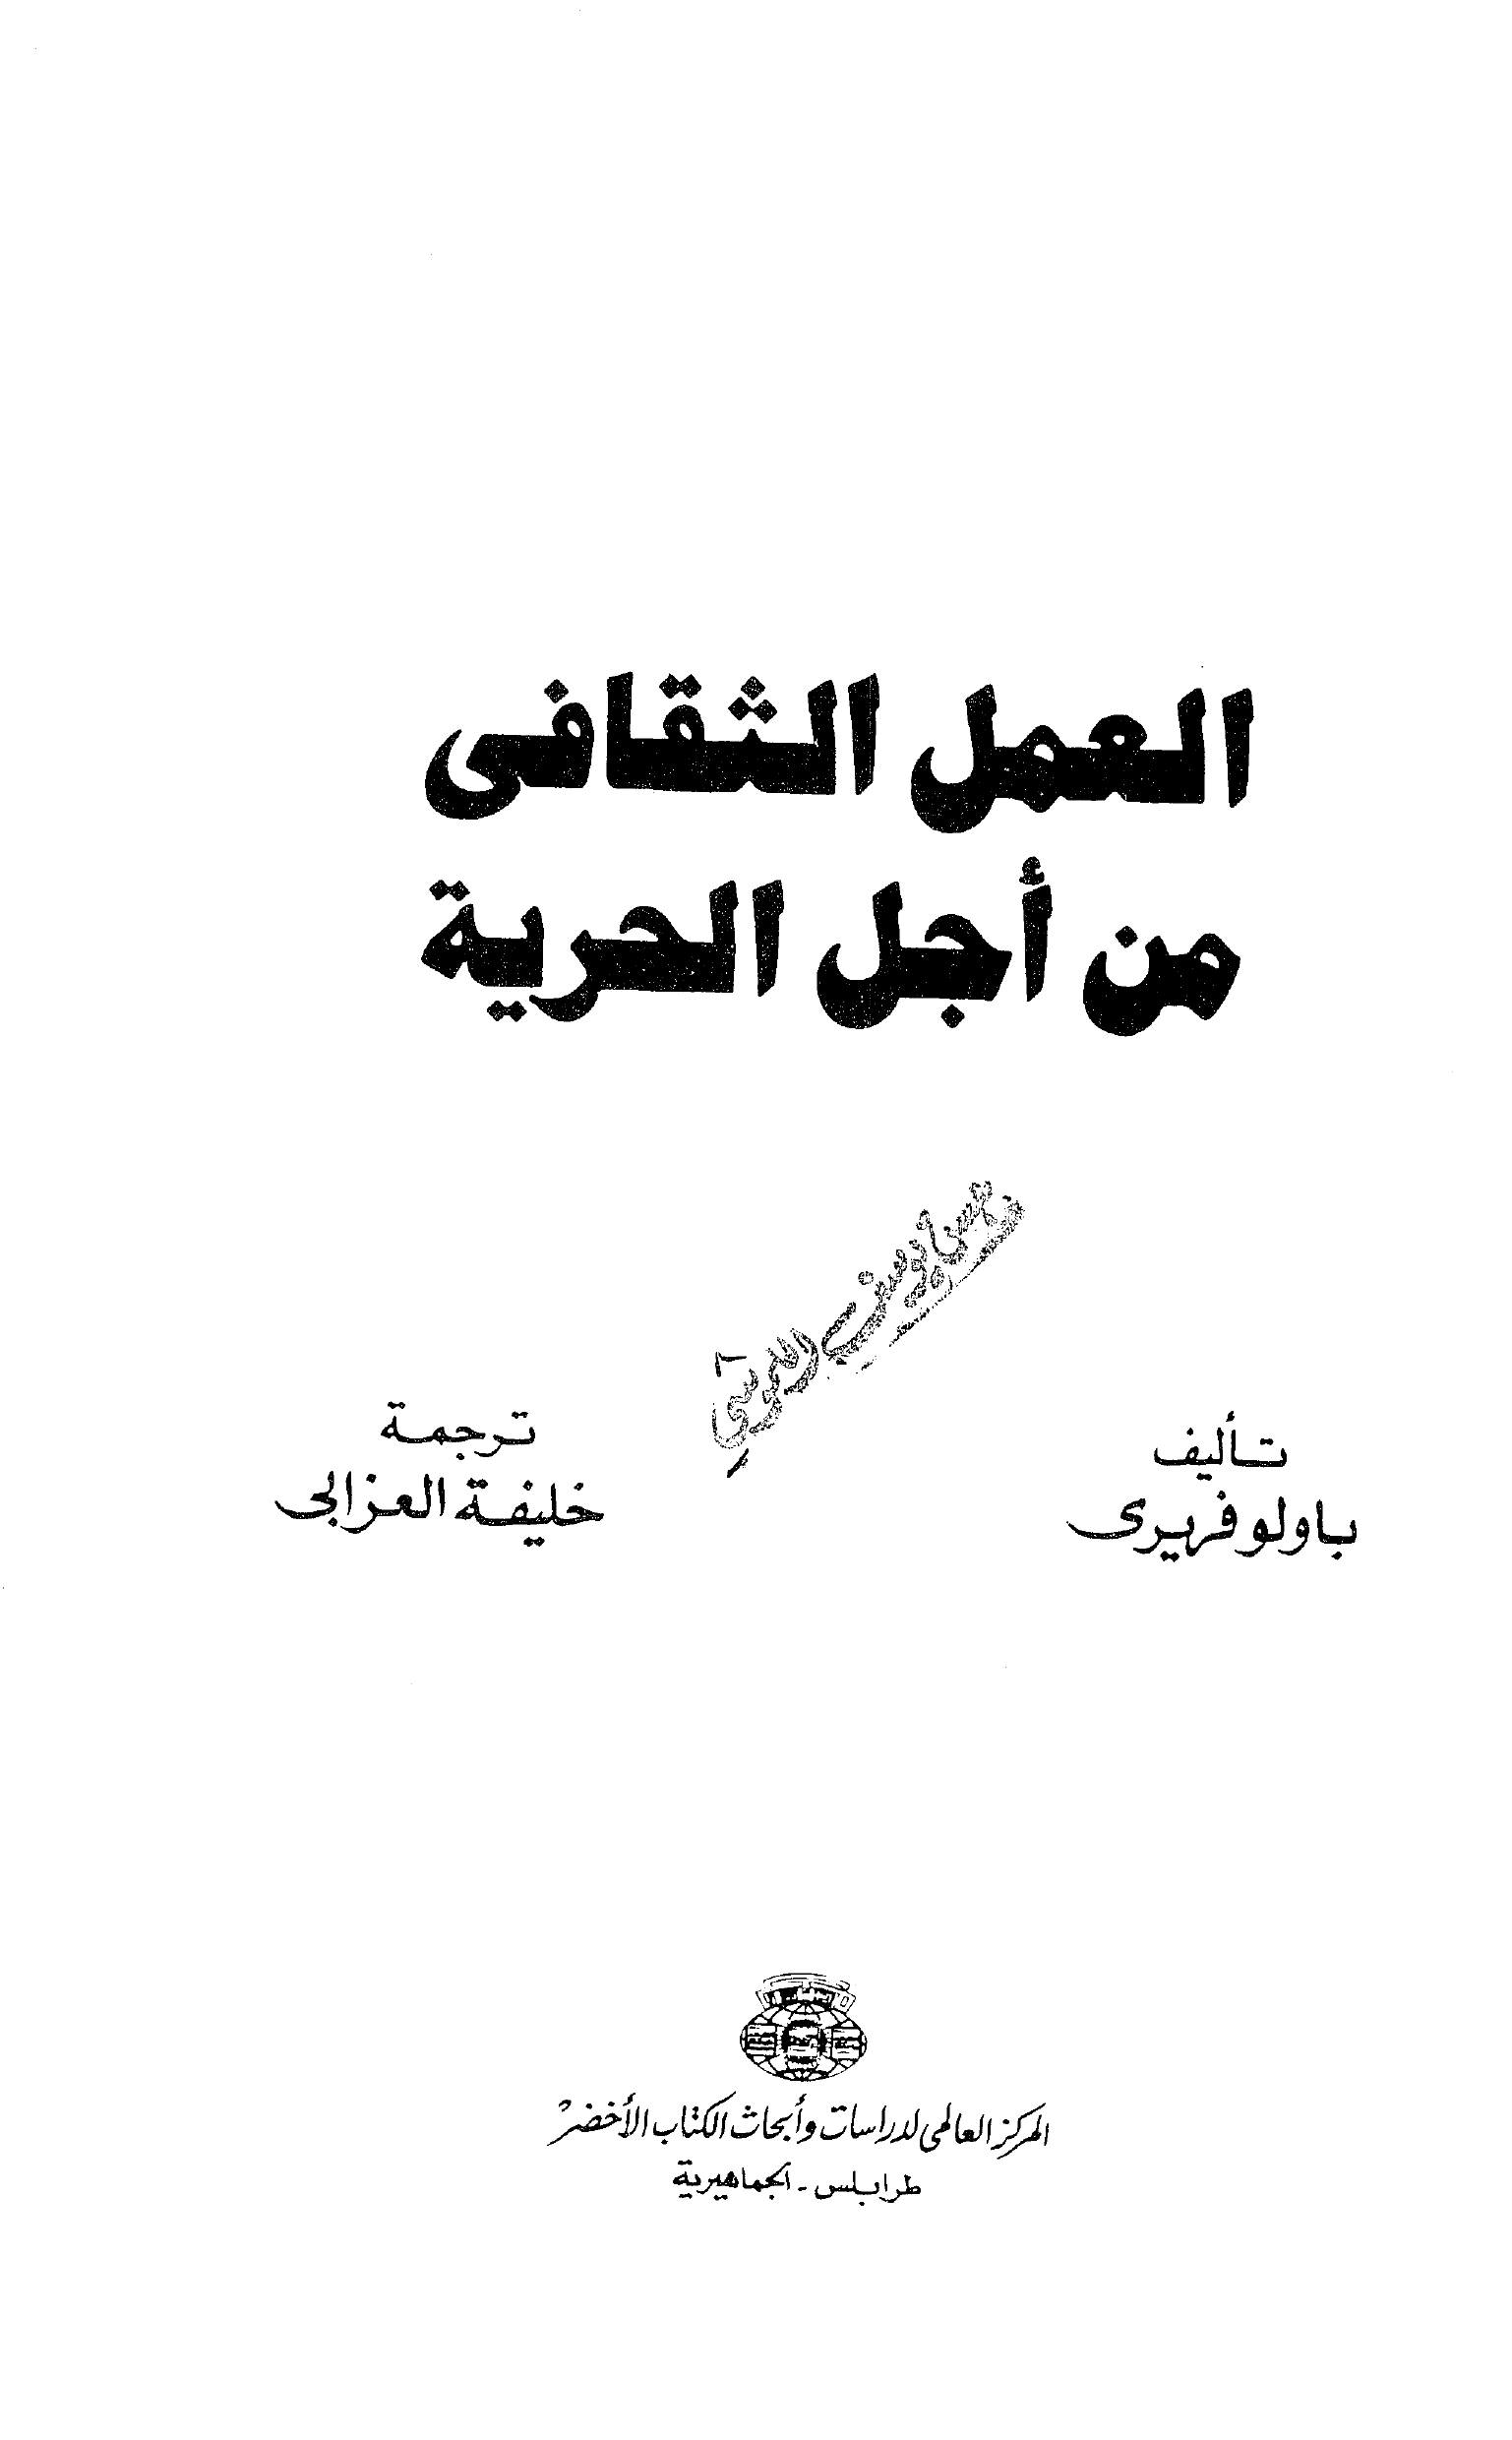 العمل الثقافى
من أجل الحرية
تأليف
باولو فريرى
ترجمة
خليفة العزابى
المركز العالمى لدراسات وأبحاث الكتاب الأخضر
طرابلس - الجماهيرية